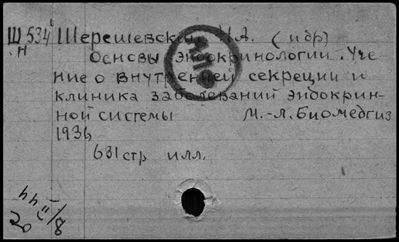 Ш534 Шерешевский Н.А. (и др)
Н
Основы эндокринологии. Уче
ние о внутренней секреции и
клиника заболеваний эндокрин-
ной системы М.-Л. Биомедгиз
1936
631 стр илл.